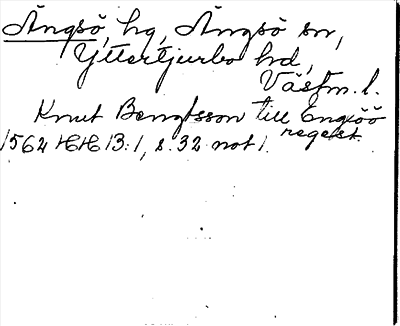 Ängsö, hg, Ängsö sn,
Yttertjurbo hd,
Västm. l.
Knut Bengtsson till Engsöö
regest
1562 HH 13:1, s. 32 not 1.